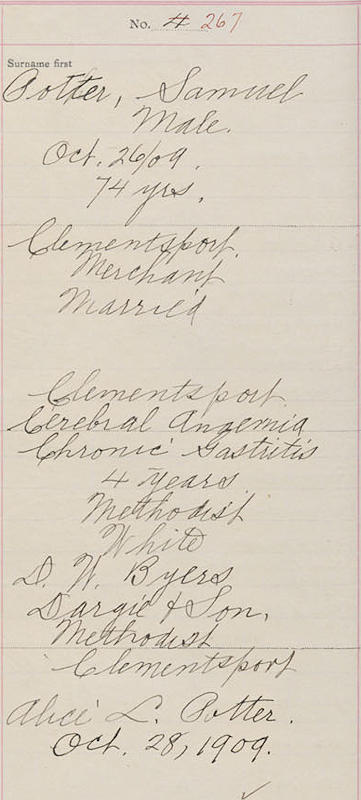 No. # 267
Surname first
Potter, Samuel
Male.
Oct. 26/09.
74 yrs.
Clementsport.
Merchant
Married
Clementsport.
Cerebral Angemia
Chronic Gastritis
4 years
Methodist
White
D. W. Byers
Dargie & Son,
Methodist
Clementsport
Alice L. Potter.
Oct. 28, 1909.